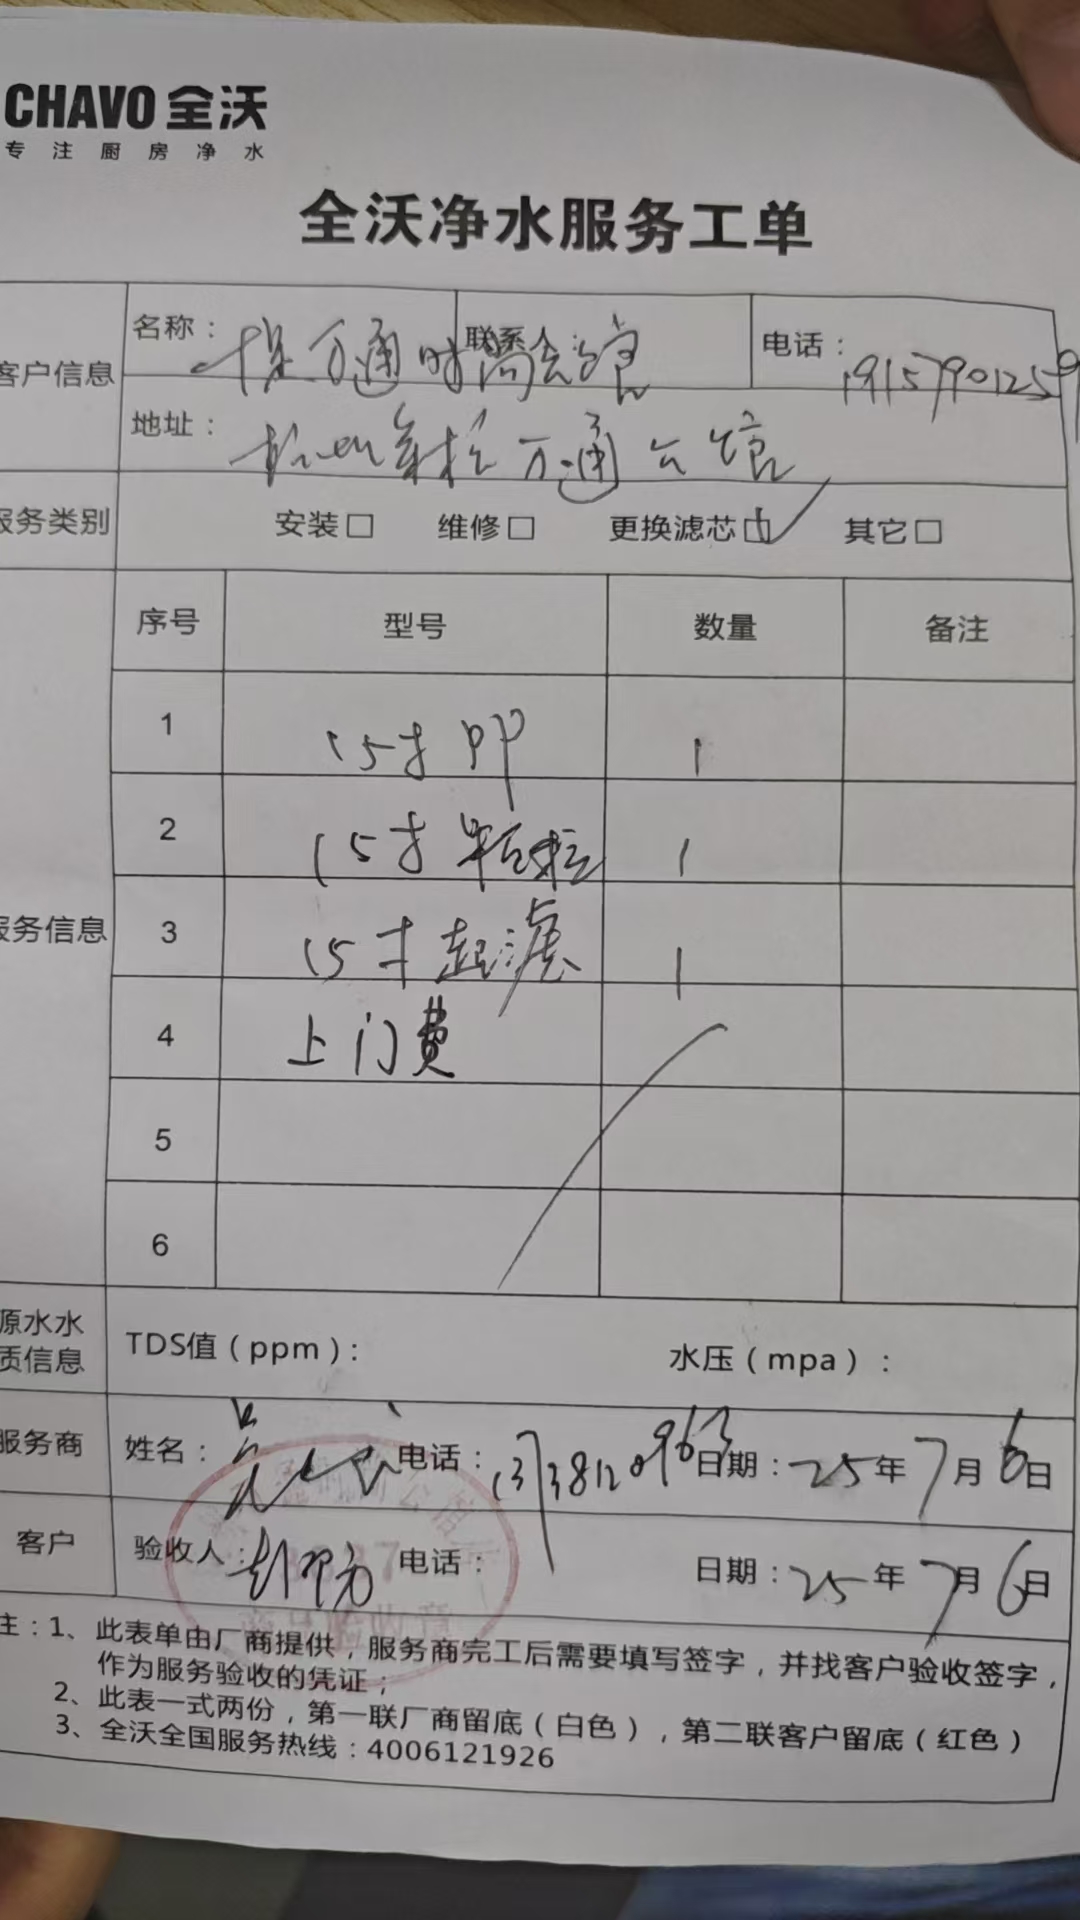 CHAVO 全沃
专注厨房净水
全沃净水服务工单
客户信息
名称： 万通时尚会馆 联系人： 电话：19157901259
地址： 万通公馆
服务类别 安装□ 维修□ 更换滤芯□✓ 其它□
序号 型号 数量 备注
服务信息
1 15寸PP 1
2 15寸颗粒 1
3 15寸超滤 1
4 上门费
5
6
源水水质信息
TDS值（ppm）： 水压（mpa）：
服务商 姓名： 电话：13738120963 日期：25年7月6日
客户 验收人： 电话： 日期：25年7月6日
注：1、此表单由厂商提供，服务商完工后需要填写签字，并找客户验收签字，
作为服务验收的凭证；
2、此表一式两份，第一联厂商留底（白色），第二联客户留底（红色）
3、全沃全国服务热线：4006121926